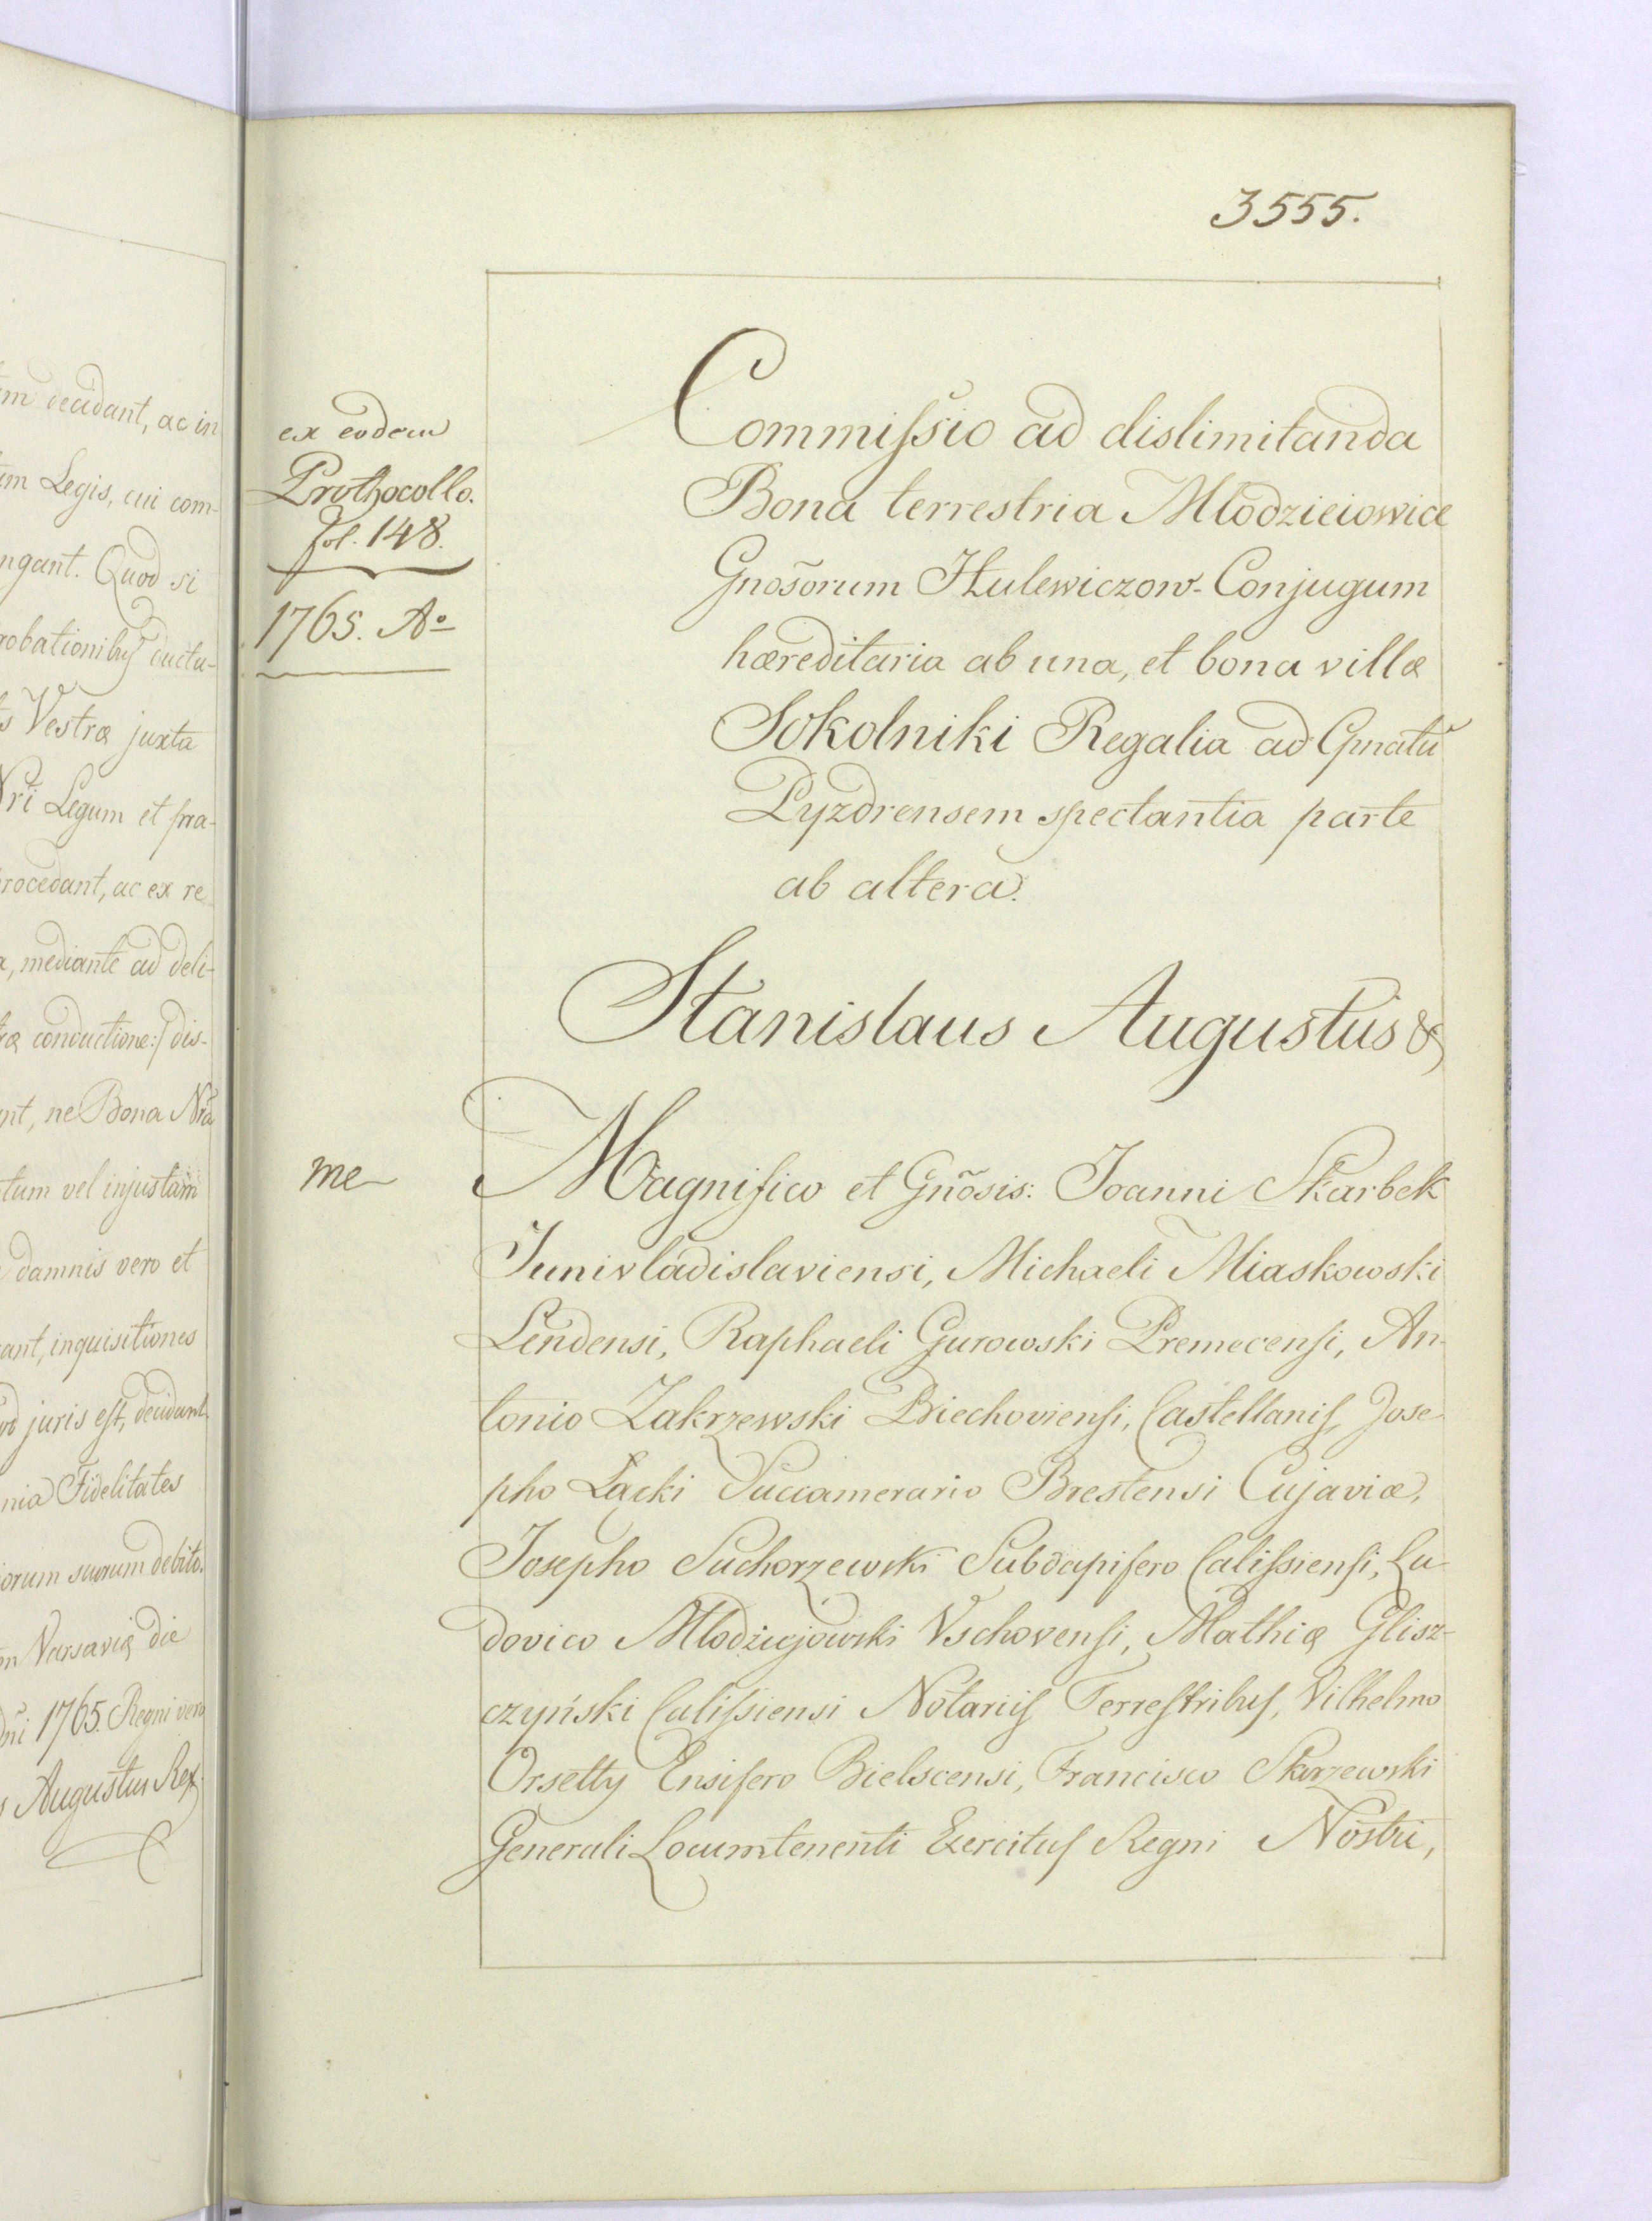 m decidant, ac in
m Legis, cui com-
ngant. Quod si
robationibus ductu-
s Vestræ juxta
Nri Legum et præ-
rocedant, ac ex re
a, mediante ad deli-
ræ conductione:/ dis-
nt, ne Bona Nra
tum vel injustam
damnis vero et
ant, inquisitiones
juris est, decidant
nia Fidelitates
orum suorum debito.
m Varsaviæ die
1765. Regni vero
s Augustus Rex
3555.
ex eodem
Prothocollo.
fol. 148.
1765. Aº
Commissio ad dislimitanda
Bona terrestria Młodzieiowice
Gnõsorum Hulewiczow Conjugum
hæreditaria ab una, et bona villæ
Sokolniki Regalia ad Cpnatũ
Pyzdrensem spectantia parte
ab altera.
Stanislaus Augustus &
me
Magnifico et Gnõsis: Joanni Skarbek
Junivladislaviensi, Michaeli Miaskowski
Lendensi, Raphaeli Gurowski Premecensi, An-
tonio Zakrzewski Biechoviensi, Castellanis, Jose
pho Łącki Succamerario Brestensi Cujaviæ,
Josepho Suchorzewski Subdapifero Calissiensi, Lu-
dovico Młodziejowski Vschovensi, Mathiæ Glisz-
czyński Calissiensi Notariis Terrestribus, Vilhelmo
Orsetty Ensifero Bielscensi, Francisco Skorzewski
Generali Locumtenenti Exercitus Regni Nostri,